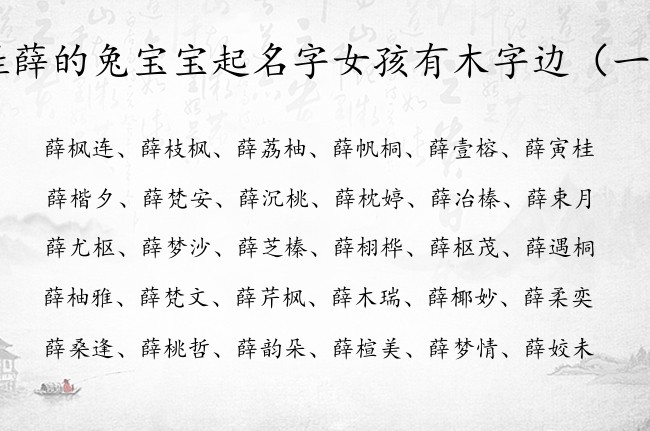 姓薛的兔宝宝起名字女孩有木字边（一
薛枫连、薛枝枫、薛荔柚、薛帆桐、薛壹榕、薛寅桂
薛楷夕、薛梵安、薛沉桃、薛枕婷、薛冶榛、薛束月
薛尤枢、薛梦沙、薛芝榛、薛栩桦、薛枢茂、薛遇桐
薛柚雅、薛梵文、薛芹枫、薛木瑞、薛椰妙、薛柔奕
薛桑逢、薛桃哲、薛韵朵、薛楦美、薛梦情、薛姣未